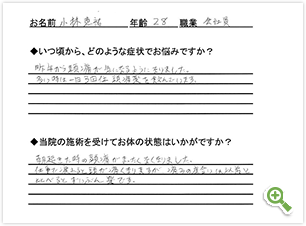 お名前 小林 年齢 28 職業 会社員
◆いつ頃から、どのような症状でお悩みですか?
昨年から頭痛が気になるようになりました。
ひどい時は一日3回位頭痛薬を飲んでいます。
◆当院の施術を受けてお体の状態はいかがですか?
朝起きた時の頭痛がまったくなくなりました。
仕事で疲れると頭が痛くなりますが 痛みの度合いは以前と
比べるとずいぶん楽です。